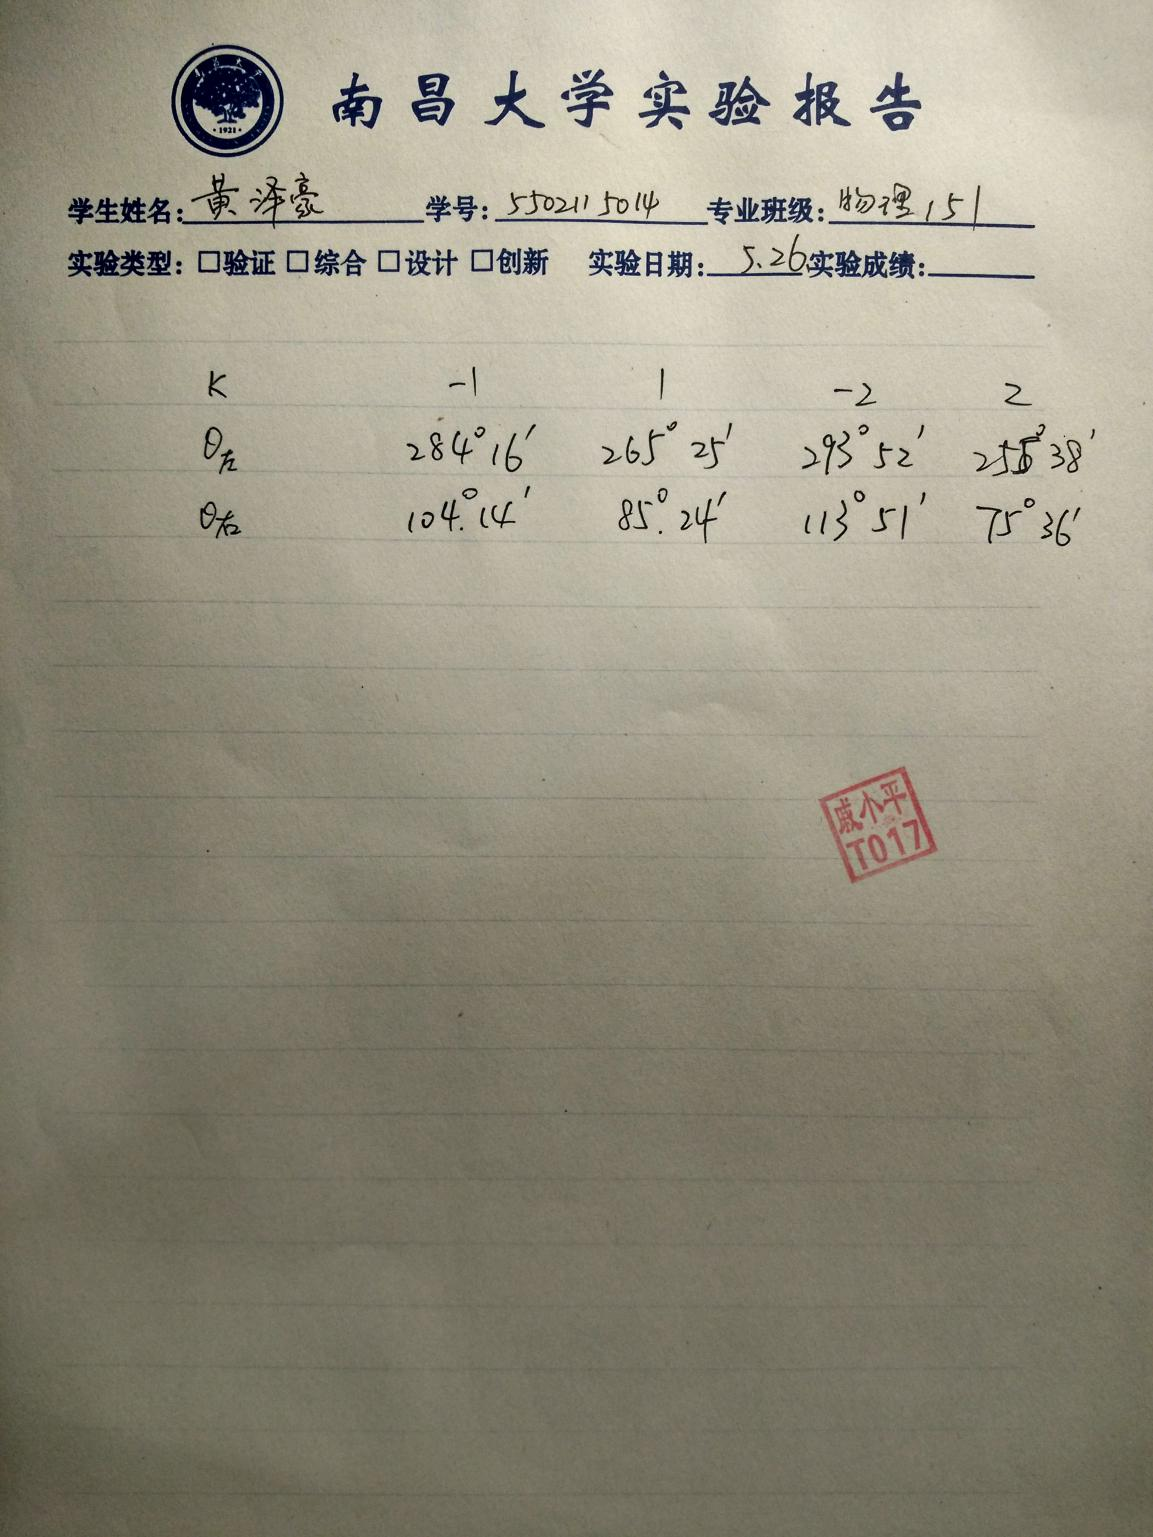 南昌大学实验报告
·1921·
学生姓名: 黄泽豪 学号: 5502115014 专业班级: 物理151
实验类型: □验证 □综合 □设计 □创新 实验日期: 5.26 实验成绩:
K -1 1 -2 2
θ左 284°16′ 265°25′ 293°52′ 255°38′
θ右 104°.14′ 85°.24′ 113°51′ 75°36′
戚小平
T017